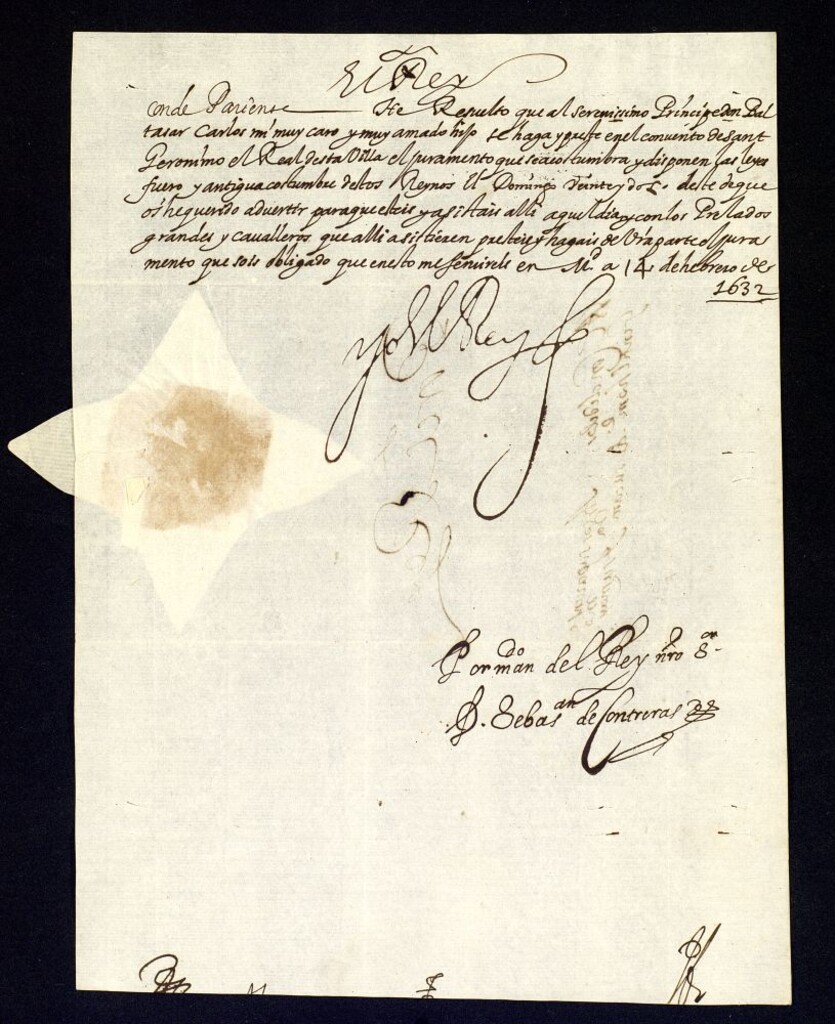 El Rey
Conde Pariente He Resuelto que al serenissimo Principe don Bal
tasar Carlos mi muy caro y muy amado hijo se haga y preste en el convento de sant
Geronimo el Real desta Villa el juramento que se acostumbra y disponen las leyes
fuero y antigua costumbre destos Reynos El Domingo Veinte y dos deste de que
os he querido advertir para que esteis y asistais alli aquel dia y con los Prelados
grandes y cavalleros que alli asistieren presteis y hagais de Vra parte el jura
mento que sois obligado que en esto me servireis en Md. a 14 de hebrero de
1632
Yo El Rey
Por mando del Rey nro Sor
D. Sebasan de Contreras